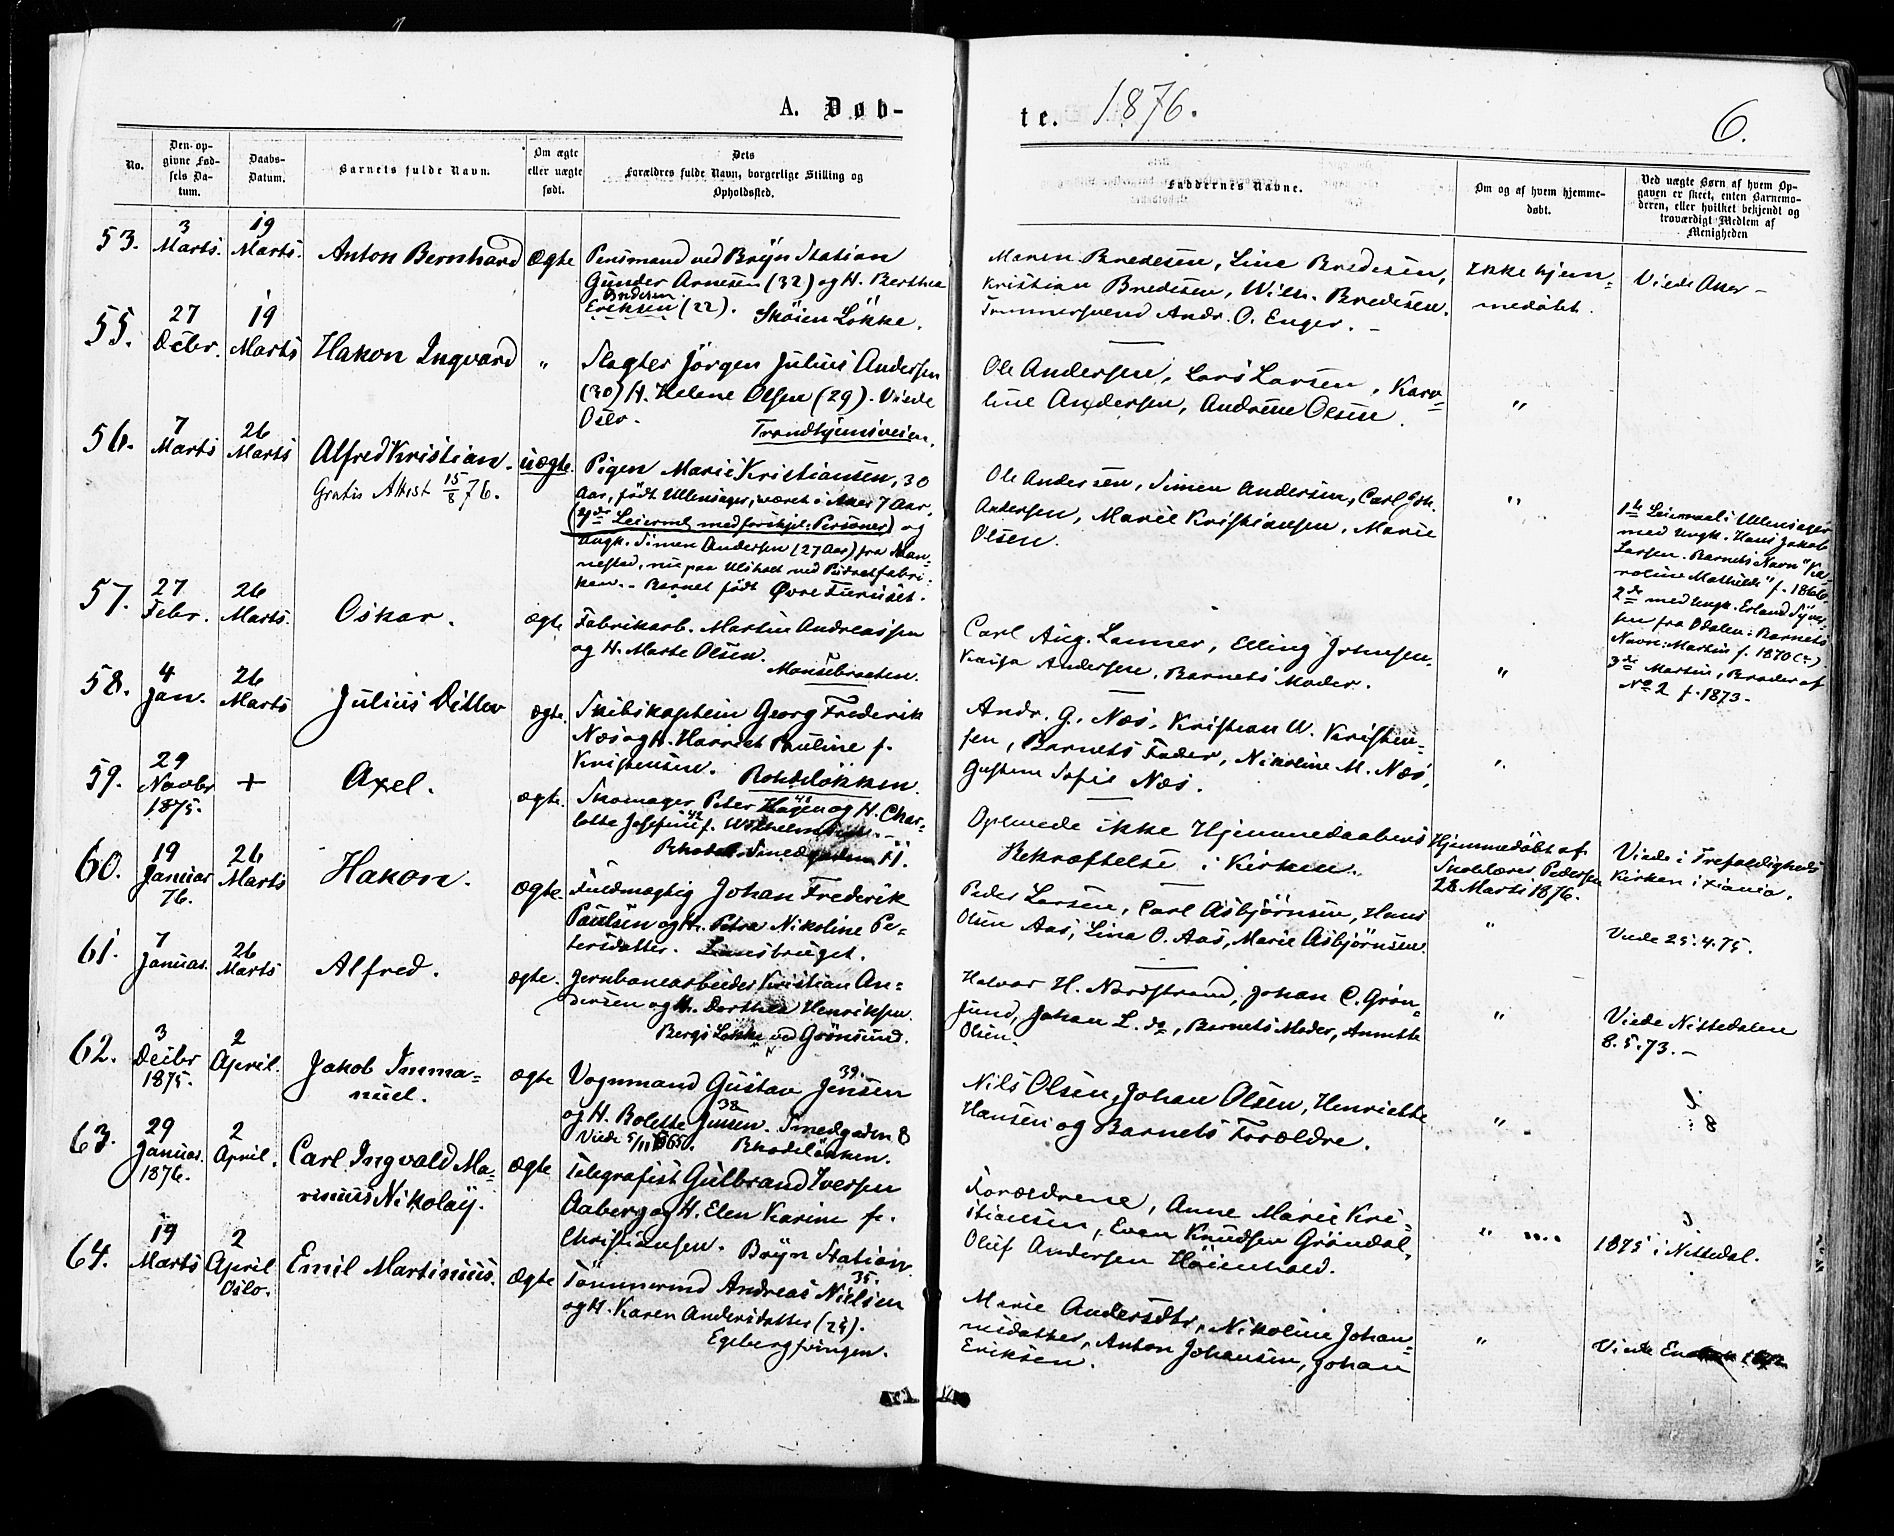 A. Døb-
te. 1876.
6.
No.
Den op-
givne Fød-
sels Da-
tum.
Daabs-
Datum.
Barnets fulde Navn.
Om ægte
eller uægte
født.
Dets
Forældres fulde Navn, borgerlige Stilling og
Opholdssted.
Faddernes Navne.
Om og af hvem hjemme-
døbt.
Ved uægte Børn af hvem Op-
gaven er skeet, enten Barnemo-
deren, eller hvilket bekjendt og
troværdigt Medlem af
Menigheden
53. 3 Marts. 19 Marts. Anton Bernhard Ægte
Pensmand ved Bryn Station
Gunder Arnesen (32) og H. Berthea
Bredesen
Eriksen (22). Skøien Løkke.
Maren Bredesen, Line Bredesen,
Kristian Bredesen, Wilh. Bredesen.
Tømmersvend Andr. O. Enger. –
Ikke hjem-
medøbt.
Viede Aker –
55. 27 Decbr. 19 Marts Hakon Ingvard "
Slagter Jørgen Julius Andersen
(30) H. Helene Olsen (29). Viede
Oslo. Trondhjemsveien.
Ole Andersen, Lars Larsen, Karo-
line Andersen, Andrine Olsen.
"
56. 7 Marts 26 Marts Alfred Kristian. uægte.
Gratis Attest 15/8 76.
Pigen Marie Kristiansen, 30
Aar, født Ullensager, været i Aker 7 Aar,
(4de Leierml med forskjel: Personer) og
Ungk. Simen Andersen (27 Aar) fra Nan-
nestad, nu paa Ulsholt ved Pudretfabri-
ken. – Barnet født Øvre Furuset.
Ole Andersen, Simen Andersen, Carl Joh.
Andersen, Marie Kristiansen, Marie
Olsen.
"
1ste Leiermaal i Ullensager
med Ungk. Hans Jakob
Larsen. Barnets Navn "Ka-
roline Mathilde" f. 1866.
2de med Ungk. Erland Syver-
sen fra Odalen: Barnets
Navn: Martin f. 1870 (?)
3de Martin, Broder af
No 2 f. 1873 –
57. 27 Febr. 26 Marts. Oskar. ægte
Fabrikarb. Martin Andreassen
og H. Marte Olsen.
Mansebraaten.
Carl Aug. Lanner, Elling Johnsen,
Kaisa Andersen, Barnets Moder.
"
58. 4 Jan. 26 Marts Julius Ditlev ægte.
Skibskaptein Georg Frederik
Næs og H. Harriet Pauline f.
Kristensen. Rodeløkken.
Andr. G. Næs, Kristian W. Kristen-
sen, Barnets Fader, Nikoline M. Næs,
Gustava Sofie Næs.
"
59. 29 Novbr 1875. + Axel. ægte.
Skomager Peter Hagen og H. Char-
lotte Josefine f. Wilhelmsen. –
Rhodel. Smedgaden 11.
Oplevede ikke Hjemmedaabens
Bekræftelse i Kirken.
Hjemmedøbt af
Skolelærer Pedersen
28 Marts 1876.
Viede i Trefoldigheds
Kirken i Xiania.
60. 19 Januar 76. 26 Marts Hakon. ægte.
Fuldmægtig Johan Frederik
Paulsen og H. Petra Nikoline Pe-
tersdatter. Lansbruget.
Peder Larsen, Carl Asbjørnsen, Hans
Olsen Aas, Lina O. Aas, Marie Asbjørnsen.
"
Viede 25.4.75.
61. 7 Januar. 26 Marts Alfred. ægte.
Jernbanearbeider Kristian An-
dersen og H. Dorthea Henriksen.
Bergs Løkke ved Grønsund.
Halvor H. Nordstrand, Johan C. Grøn-
sund, Johan L. do, Barnets Moder, Annette
Olsen.
"
Viede Nittedalen
8.5.73. –
62. 3 Decbr 1875. 2 April. Jakob Imma-
nuel. ægte
Vognmand Gustav Jensen 39.
og H. Bolette Jensen. 38 Smedgaden 8
Viede 5/11 1865. Rhodeløkken.
Nils Olsen, Johan Olsen, Henriette
Hansen og Barnets Forældre.
"
63. 29 Januar. 1876. 2 April. Carl Ingvald Ma-
rinius Nikolay. ægte
Telegrafist Gulbrand Iversen
Aaberg og H. Elen Karine f.
Christiansen. Bryn Station.
Forældrene, Anne Marie Kri-
stiansen, Even Knudsen Grøndal,
Oluf Andersen Høienhald.
"
1875 i Nittedal.
64. 19 Marts 2 April Oslo. Emil Martinius. ægte
Tømmermd Andreas Nielsen 35.
og H. Karen Andersdatter (24).
Egebergsvingen.
Marie Andersdtr, Nikoline Johan-
nesdatter, Anton Johansen, Johan
Eriksen.
"
Viede